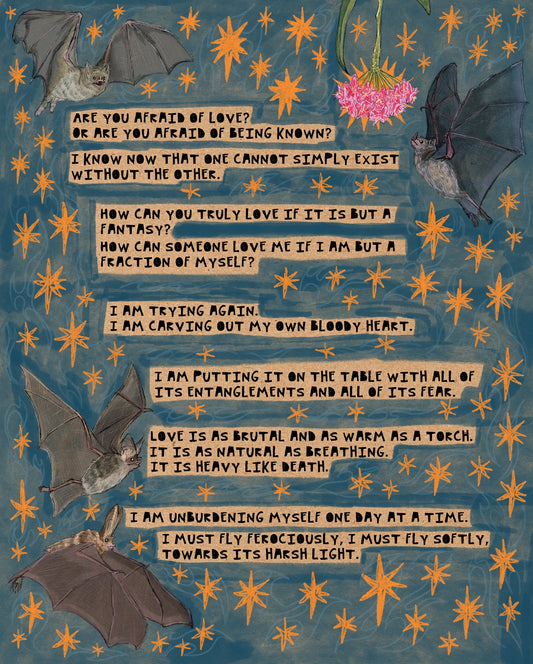 ARE YOU AFRAID OF LOVE?
OR ARE YOU AFRAID OF BEING KNOWN?
I KNOW NOW THAT ONE CANNOT SIMPLY EXIST
WITHOUT THE OTHER.
HOW CAN YOU TRULY LOVE IF IT IS BUT A
FANTASY?
HOW CAN SOMEONE LOVE ME IF I AM BUT A
FRACTION OF MYSELF?
I AM TRYING AGAIN.
I AM CARVING OUT MY OWN BLOODY HEART.
I AM PUTTING IT ON THE TABLE WITH ALL OF
ITS ENTANGLEMENTS AND ALL OF ITS FEAR.
LOVE IS AS BRUTAL AND AS WARM AS A TORCH.
IT IS AS NATURAL AS BREATHING.
IT IS HEAVY LIKE DEATH.
I AM UNBURDENING MYSELF ONE DAY AT A TIME.
I MUST FLY FEROCIOUSLY, I MUST FLY SOFTLY,
TOWARDS ITS HARSH LIGHT.